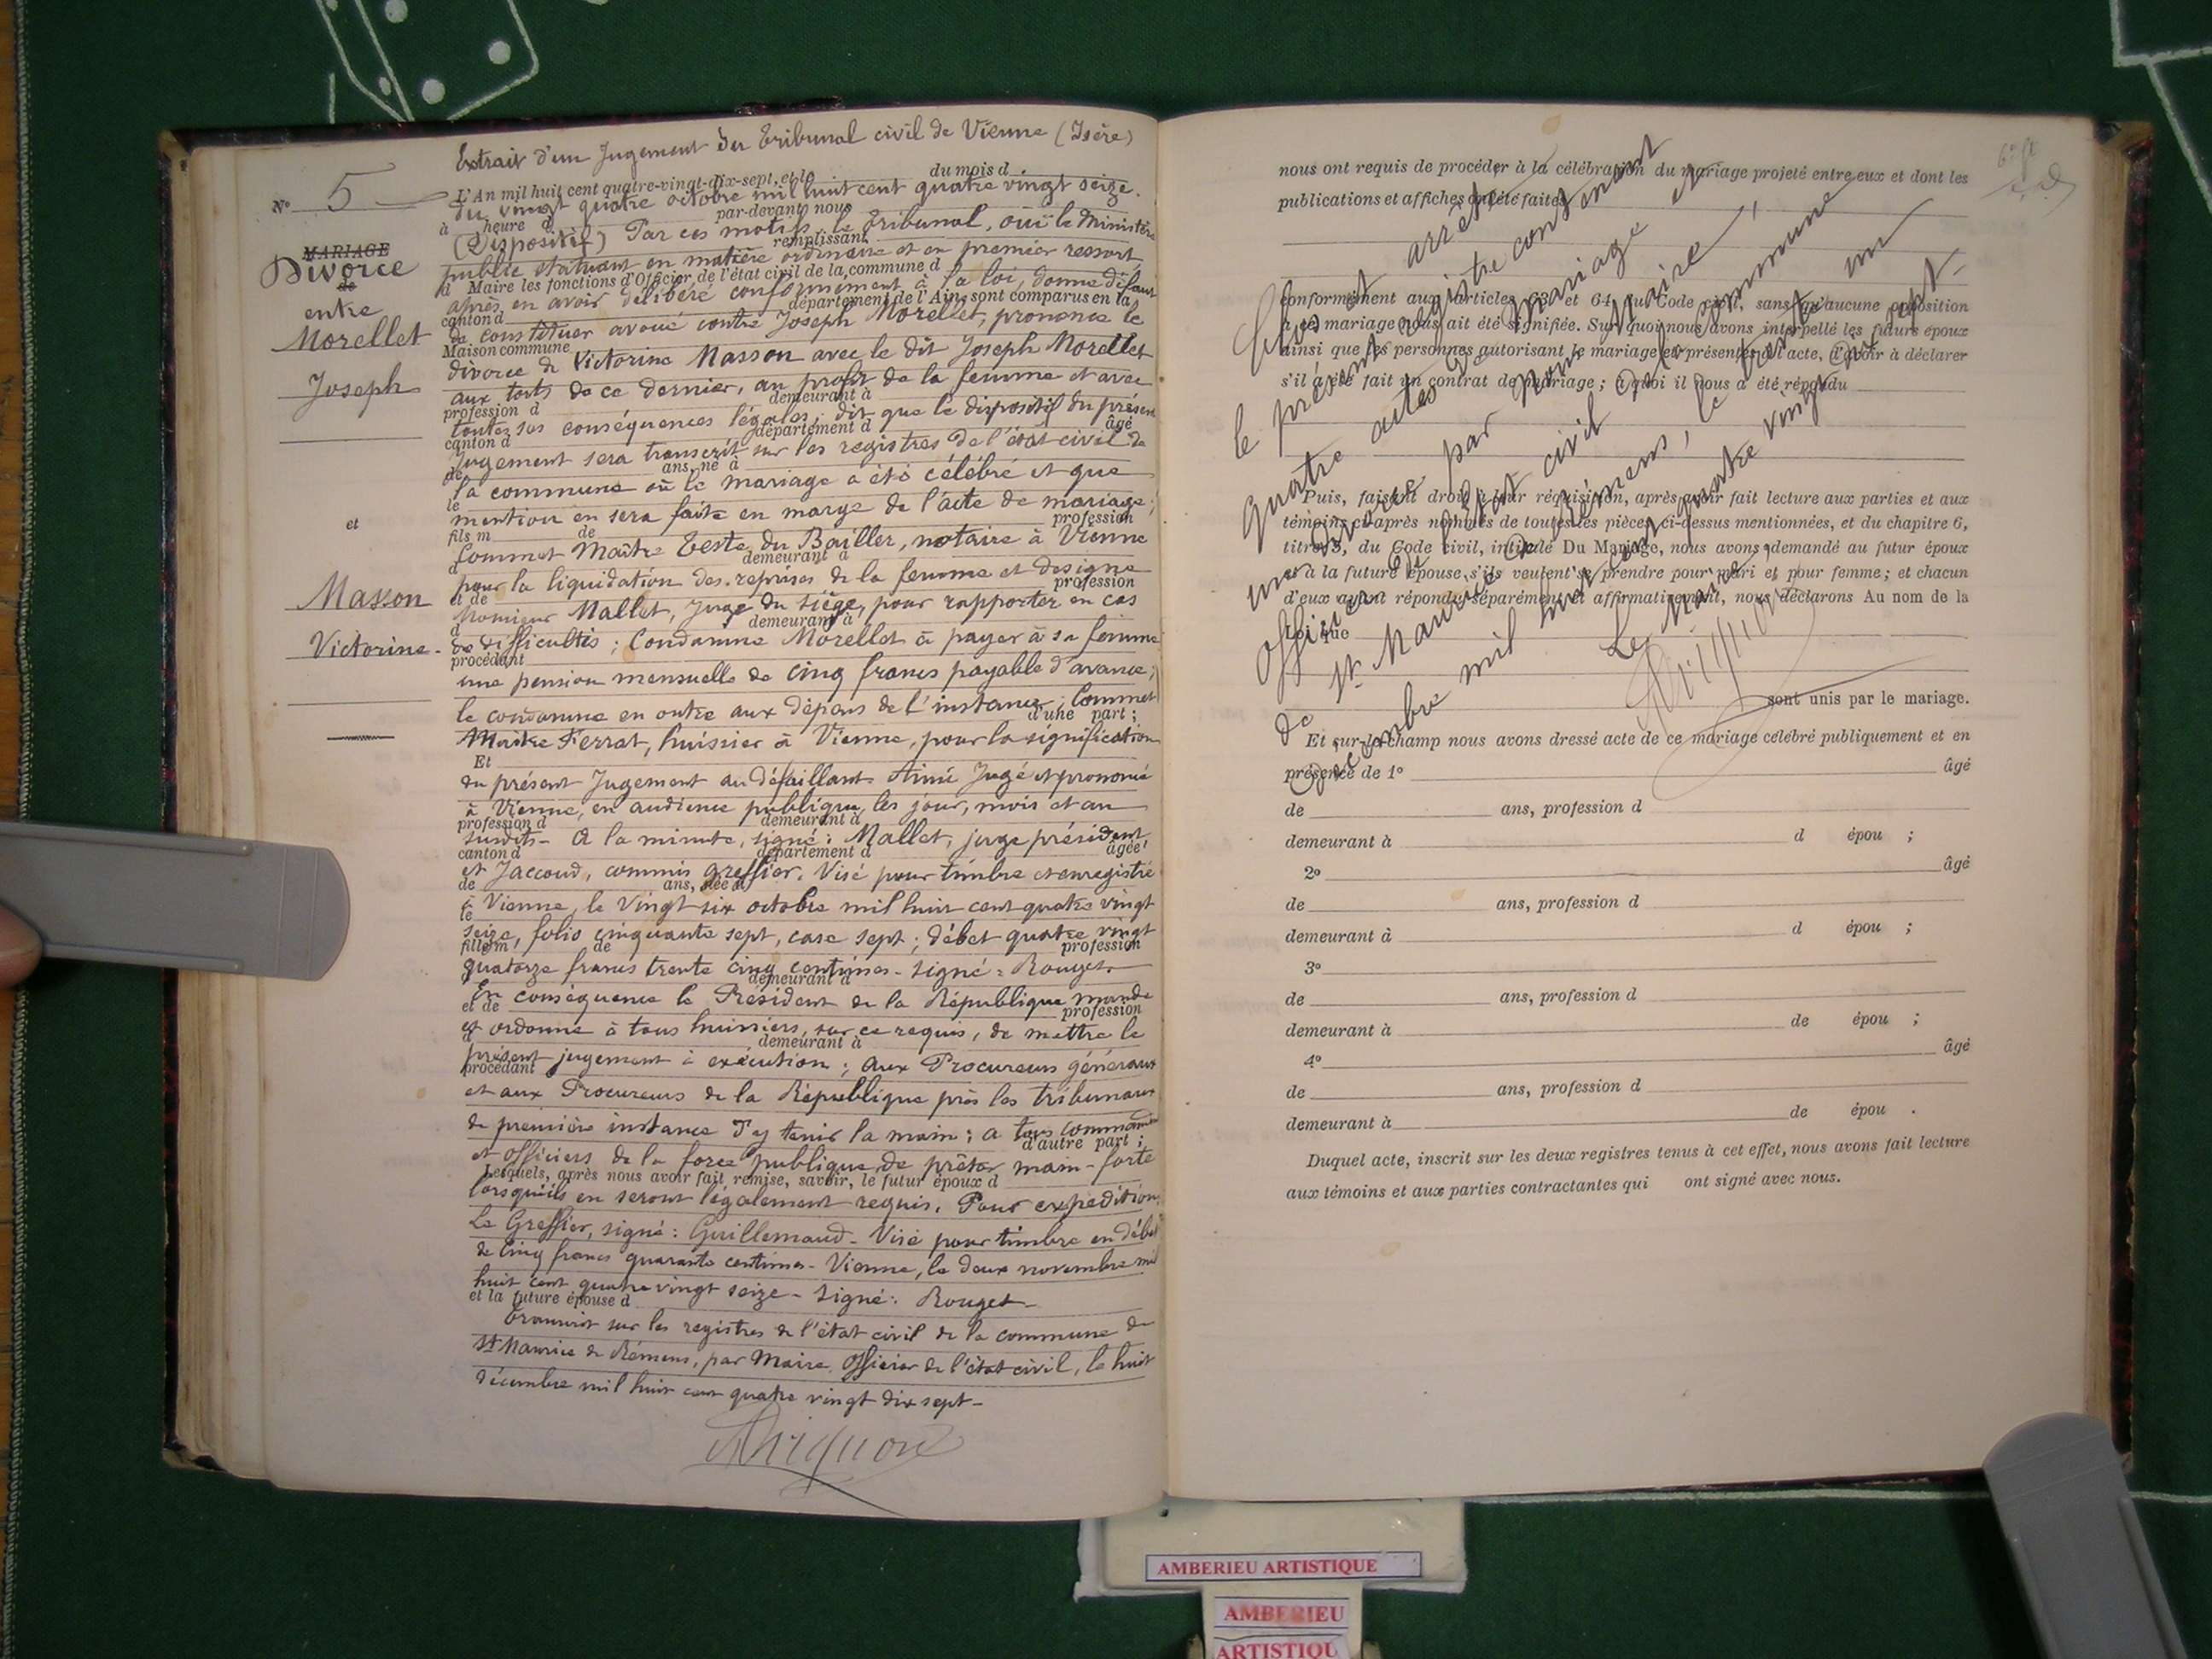 Extrait d'un Jugement du Tribunal civil de Vienne (Isère)
L'An mil huit cent quatre-vingt-dix-sept, et l du mois d
N° 5
du vingt quatre octobre mil huit cent quatre vingt seize.
à heure d par-devant nous
(Dispositif) Par ces motifs, le Tribunal, ouï le Ministère
remplissant
MARIAGE
Divorce
de
entre
Morellet
Joseph
et
Masson
Victorine-
public statuant en matière ordinaire et en premier ressort
d Maire les fonctions d'Officier de l'état civil de la commune d
après en avoir délibéré conformément à la loi, donne défaut
canton d département de l'Ain, sont comparus en la
de constituer avoué contre Joseph Morellet, prononce le
Maison commune
divorce de Victorine Masson avec le dit Joseph Morellet
aux torts de ce dernier, au profit de la femme et avec
profession d demeurant à
toutes ses conséquences légales; dit que le dispositif du présent
canton d département d âgé
jugement sera transcrit sur les registres de l'état civil de
de ans, né à
la commune où le mariage a été célébré et que
le
mention en sera faite en marge de l'acte de mariage;
fils m de profession
Commet Maître Teste du Bailler, notaire à Vienne
d demeurant à
pour la liquidation des reprises de la femme et désigne
et de profession
Monsieur Mallet, Juge du siège, pour rapporter en cas
d demeurant à
de difficultés; Condamne Morellet à payer à sa femme
procédant
une pension mensuelle de cinq francs payable d'avance;
le condamne en outre aux dépens de l'instance; Commet
d'une part;
Maître Ferrat, huissier à Vienne, pour la signification
Et
du présent Jugement au défaillant. Ainsi Jugé et prononcé
à Vienne, en audience publique, les jour, mois et an
profession d demeurant à
susdits- A la minute, signé: Mallet, juge président
canton d département d âgée
et Jaccoud, commis greffier. Visé pour timbre et enregistré
de ans, née à
à Vienne, le Vingt six octobre mil huit cent quatre vingt
le
seize, folio cinquante sept, case sept; débet quatre vingt
fille m de profession
quatorze francs trente cinq centimes- signé: Rouget.
demeurant à
En conséquence le Président de la République mande
et de profession
et ordonne à tous huissiers, sur ce requis, de mettre le
d demeurant à
présent jugement à exécution; aux Procureurs généraux
procédant
et aux Procureurs de la République près les tribunaux
de première instance d'y tenir la main; a tous commandants
d'autre part;
et officiers de la force publique de prêter main-forte
Lesquels, après nous avoir fait remise, savoir, le futur époux d
lorsqu'ils en seront légalement requis. Pour expédition.
Le Greffier, signé: Guillemaud- Visé pour timbre en débet
de Cinq francs quarante centimes- Vienne, le deux novembre mil
huit cent quatre vingt seize- signé: Rouget-
et la future épouse d
Transcrit sur les registres de l'état civil de la commune de
St Maurice de Rémens, par Maire officier de l'état civil, le huit
décembre mil huit cent quatre vingt dix sept-
nous ont requis de procéder à la célébration du mariage projeté entre eux et dont les
publications et affiches ont été faites
conformément aux articles 63 et 64 du Code civil, sans qu'aucune opposition
à ce mariage nous ait été signifiée. Sur quoi nous avons interpellé les futurs époux
ainsi que les personnes autorisant le mariage et présentes à l'acte, d'avoir à déclarer
s'il a été fait un contrat de mariage; à quoi il nous a été répondu
Puis, faisant droit à leur réquisition, après avoir fait lecture aux parties et aux
témoins ci-après nommés de toutes les pièces ci-dessus mentionnées, et du chapitre 6,
titre 5, du Code civil, intitulé Du Mariage, nous avons demandé au futur époux
et à la future épouse s'ils veulent se prendre pour mari et pour femme; et chacun
d'eux ayant répondu séparément et affirmativement, nous déclarons Au nom de la
Loi que
sont unis par le mariage.
Et sur-le-champ nous avons dressé acte de ce mariage célébré publiquement et en
présence de 1° âgé
de ans, profession d
demeurant à d épou ;
2° âgé
de ans, profession d
demeurant à d épou ;
3°
de ans, profession d
demeurant à de épou ;
4° âgé
de ans, profession d
demeurant à de épou .
Duquel acte, inscrit sur les deux registres tenus à cet effet, nous avons fait lecture
aux témoins et aux parties contractantes qui ont signé avec nous.
Clos et arrêté
le présent registre contenant
quatre actes de mariage et
un divorce par nous Maire
officier de l'état civil de la commune
de St Maurice de Rémens, le trente un
décembre mil huit cent quatre vingt dix sept.
Le Maire
AMBERIEU ARTISTIQUE
AMBERIEU
ARTISTIQU